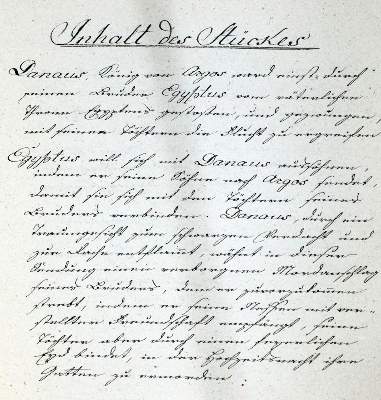 Inhalt des Stückes
Danaus, König von Argos ward einst durch
seinen Bruder Egyptus vom väterlichen
Throne Egyptens gestoßen, und gezwungen,
mit seinen Töchtern die Flucht zu ergreifen
Egyptus will sich mit Danaus aussöhnen,
indem er seine Söhne nach Argos sendet,
damit sie sich mit den Töchtern seines
Bruders verbinden. Danaus, durch ein
Traumgesicht zum schwarzen Verdacht und
zur Rache entflammt, wähnt in dieser
Sendung einen verborgnen Mordanschlag
seines Bruders, dem er zuvorzukommen
strebt, indem er seine Neffen mit ver-
stellter Freundschaft empfängt, seine
Töchter aber durch einen feyerlichen
Eyd bindet, in der Hochzeitsnacht ihre
Gatten zu ermorden: